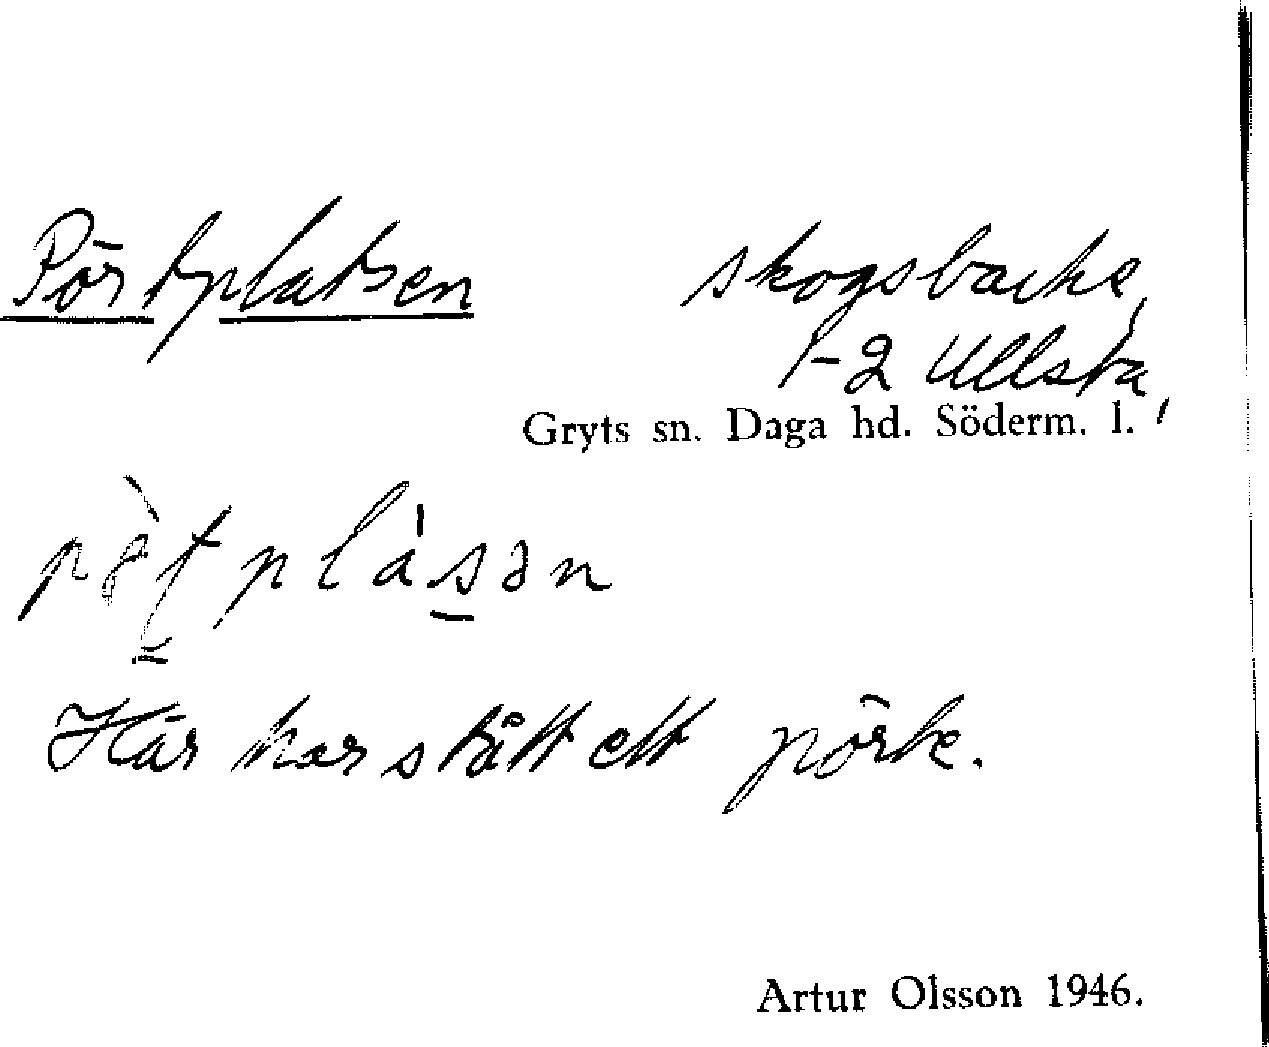 Pörtplatsen skogsbacke,
1-2 Ullsta,
Gryts sn. Daga hd. Söderm. l.
Här har stått ett pörte.
Artur Olsson 1946.